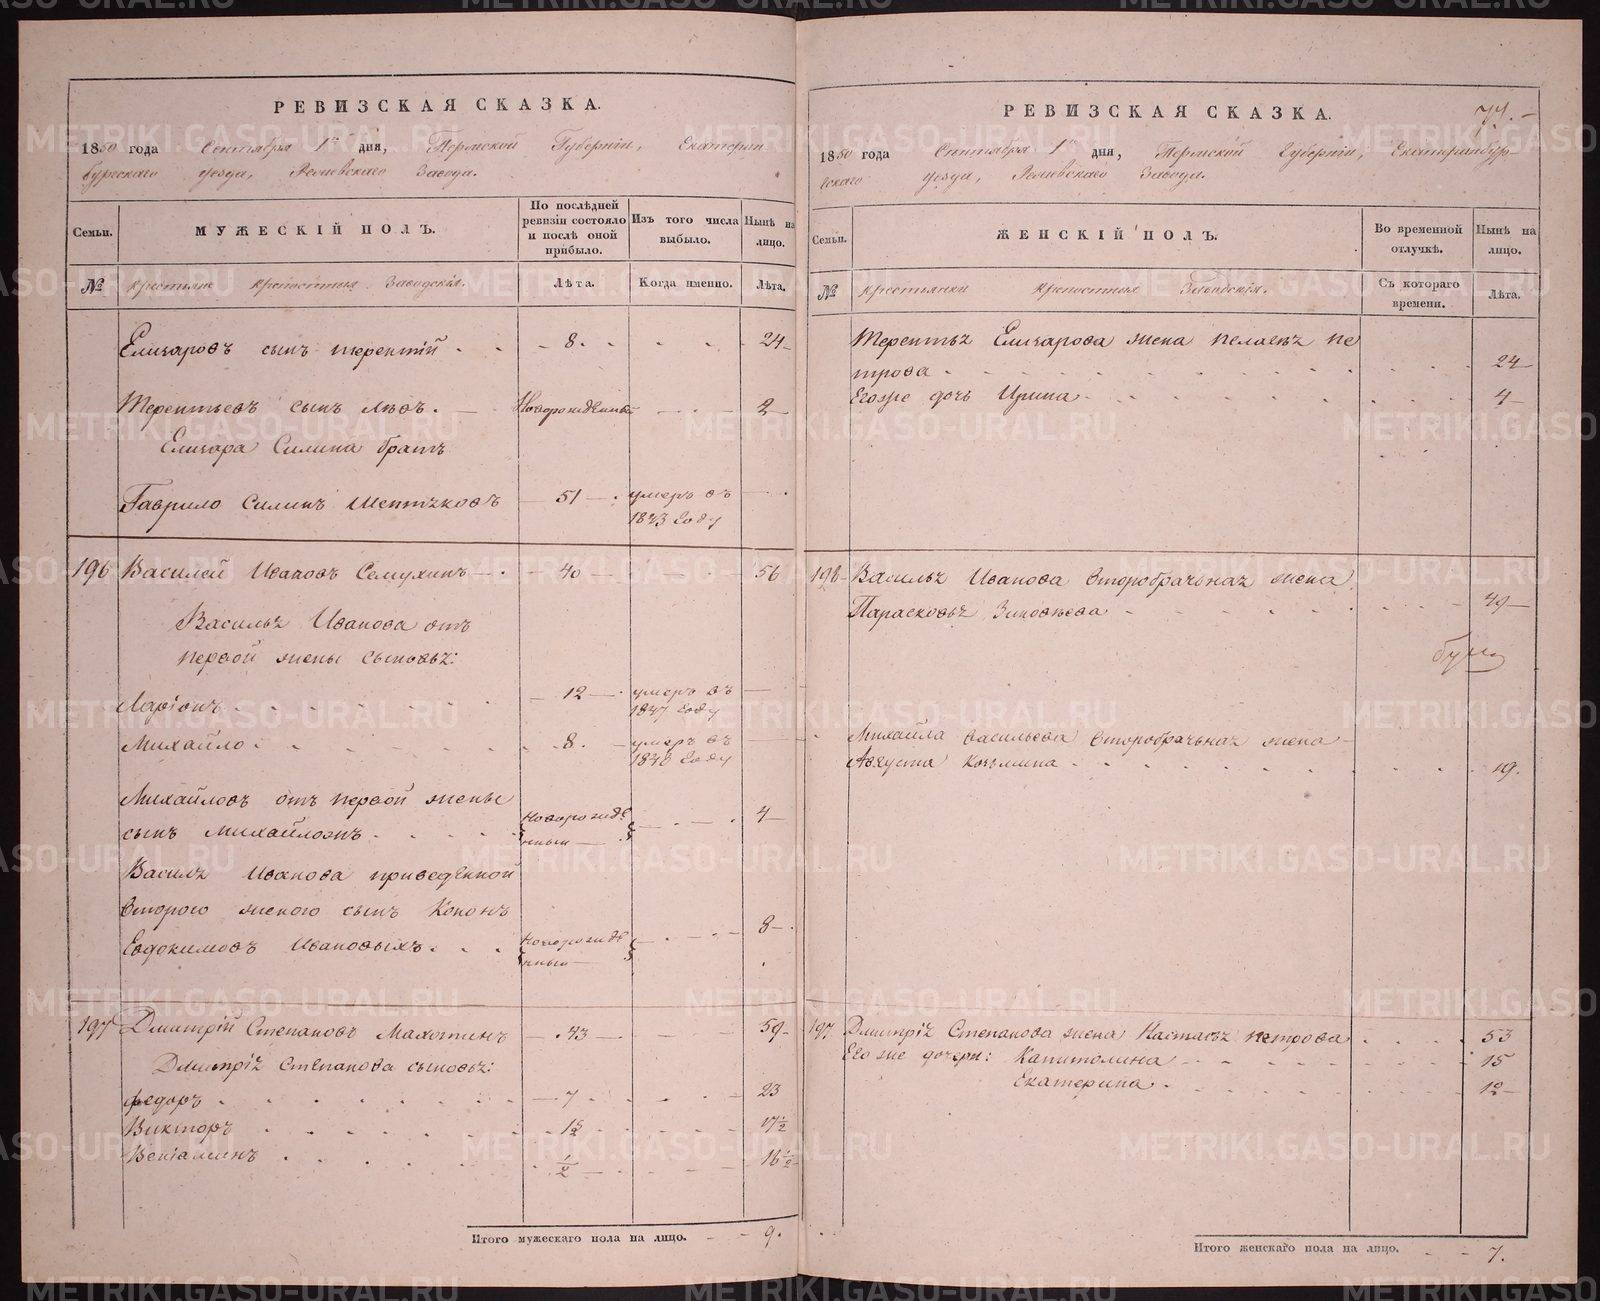 РЕВИЗСКАЯ СКАЗКА.
1850 года Сентября 1го дня, Пермской Губерніи, Екатерин
бургскаго уезда, Завода.
Семьи.
МУЖЕСКІЙ ПОЛЪ.
По послѣдней ревизіи состояло и послѣ оной прибыло.
Изъ того числа выбыло.
Нынѣ на лицо.
№
крестьяне крепостныя Заводскія.
Лѣта.
Когда именно.
Лѣта.
Елизаровъ сынъ терентій 8. 24
Терентьевъ сынъ Новорожденный 2
Елизара Силина братъ
Гаврило Силинъ 51 умеръ въ
1843 году
196 Василей Ивановъ Семухинъ 40 56
Василья Иванова отъ
первой жены сыновья:
Ларіонъ 12 умеръ въ
1847 году
Михайло 8. умеръ въ
году
Михайловъ отъ первой жены
сынъ Новорожде
нный 4
Василья Иванова приведенной
второю женою сынъ Кононъ
Евдокимовъ Ивановыхъ Новорожде
нный 8
197 Дмитрій Степановъ Махотинъ 43 59
Дмитрія Степанова сыновья:
федоръ 7 23
Викторъ 1½ 17½
Веніаминъ ½ 16½
Итого мужескаго пола на лицо. 9.
74.
РЕВИЗСКАЯ СКАЗКА.
1850 года Сентября 1го дня, Пермской Губерніи, Екатеринбур-
гскаго уезда, Завода.
Семьи.
ЖЕНСКІЙ ПОЛЪ.
Во временной отлучкѣ.
Нынѣ на лицо.
№
крестьянки крепостныя Заводскія.
Съ котораго времени.
Лѣта.
Терентья Елизарова жена пелагея пе
трова 24
Егоже дочь Ирина 4
196 Василья Иванова второбрачная жена
Парасковья Зиновьева 49
Михайла васильева второбрачная жена
Августа Козьмина 19.
197 Дмитрія Степанова жена Настасья петрова 53
Его же дочери: Капитолина 15
Екатерина 12
Итого женскаго пола на лицо. 7.
METRIKI.GASO-URAL.RU